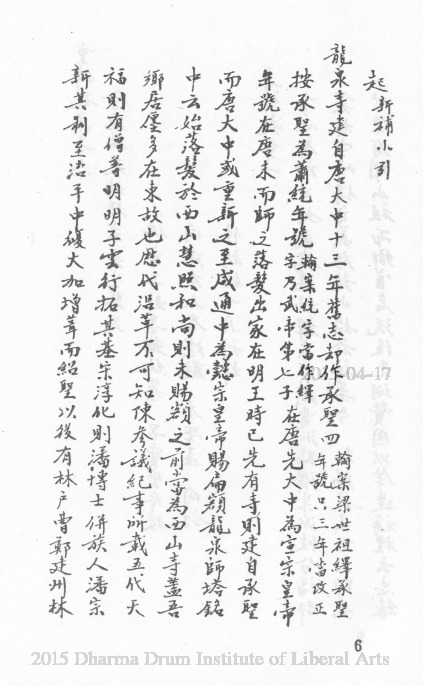 起新補小引
龍泉寺建自唐大中十三年舊志却作承聖四 翰案梁世祖繹承聖年號只三年當改正
按承聖為蕭統年號 翰案統字當作繹字乃武帝第七子 在唐先大中為宣宗皇帝
年號在唐末而師之落髮出家在明王時已先有寺則建自承聖
而唐大中或重新之至咸通中為懿宗皇帝賜扁額龍泉師塔銘
中云始落髮於西山慧照和尚則未賜額之前當為西山寺蓋吾
鄉居僅多在東故也歷代沿革不可知陳參議紀事所載五代天
福則有僧普明明子雲行拓其基宋淳化則潘博士併族人潘宗
新其剎至治平中復大加增葺而紹聖以後有林户曹鄭建州林
6
2015 Dharma Drum Institute of Liberal Arts
04-17